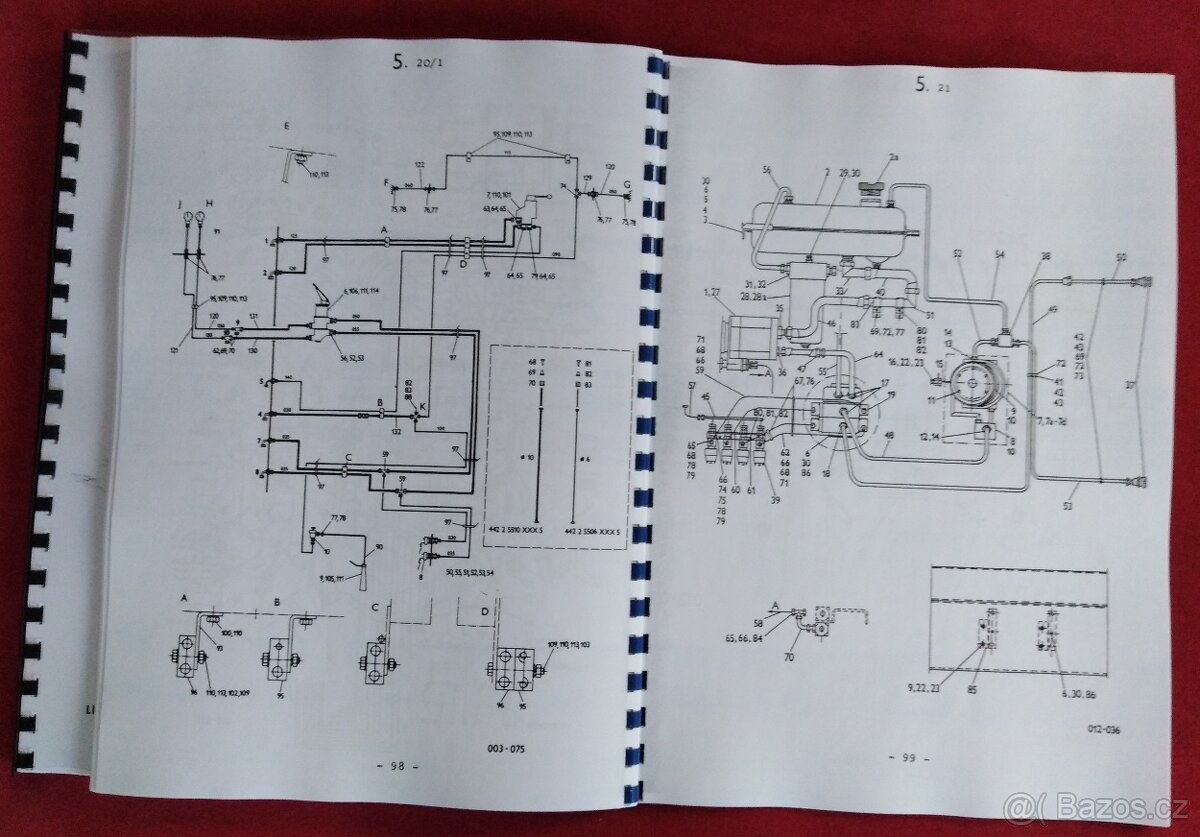 5. 20/1
E
110, 113
95, 109, 110, 113
115
122
F
040
75, 78
76, 77
7, 110, 101
63, 64, 65
74
129
120
050
G
76, 77
75, 78
J
H
91
1
125
A
97
D
97
090
2
120
64, 65
79, 64, 65
76, 77
95, 109, 110, 113
6, 106, 111, 114
120
131
121
62, 69, 70
130
050
055
56, 52, 53
97
68
69
70
81
82
83
5
040
B
82
83
88
K
4
030
132
100
97
ø 10
ø 6
7
035
C
59
8
035
97
59
77, 78
97
10
90
030
035
442 2 5510 XXX 5
442 2 5506 XXX 5
9, 105, 111
8
50, 55, 51, 52, 53, 54
A
B
C
D
100, 110
93
109, 110, 113, 103
96
110, 113, 102, 109
95
96
95
003-075
- 98 -
5. 21
2a
56
2
29, 30
30
6
5
4
3
52
54
38
50
31, 32
28, 28a
33
40
51
1, 27
35
46
83
69, 72, 77
80
81
82
49
42
43
69
72
73
37
71
68
66
59
A
36
47
55
64
14
13
15
16, 22, 23
11
72
41
42
43
57
45
67, 76
17
19
9
10
7, 7a-7d
80, 81, 82
12, 14
8
10
65
68
78
79
66
74
75
78
79
60
61
39
62
66
68
71
6
30
86
18
48
53
A
58
65, 66, 84
70
9, 22, 23
85
6, 30, 86
012-036
- 99 -
@( Bazos.cz